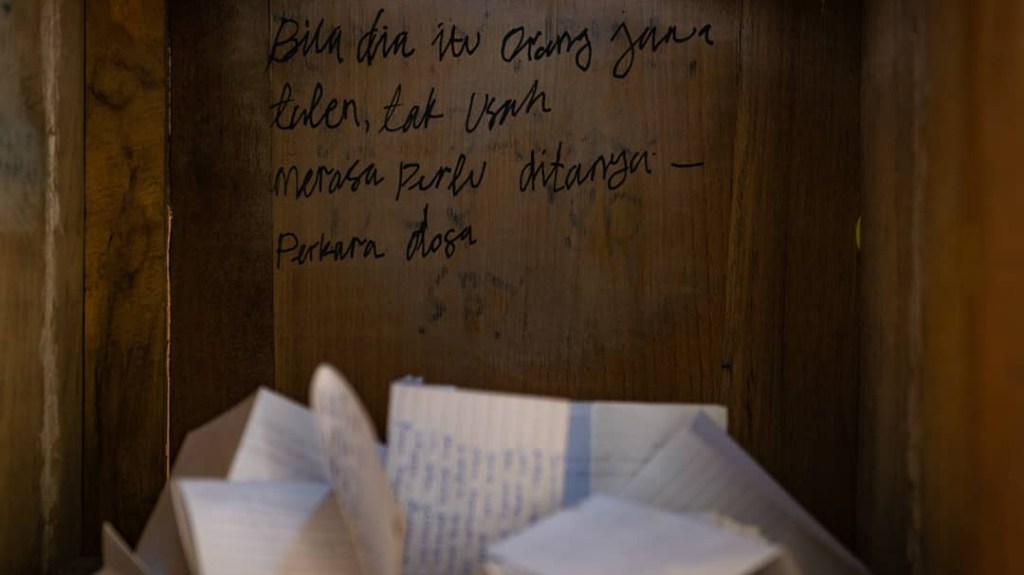 Bila dia itu orang jawa
tulen, tak usah
merasa perlu ditanya —
Perkara dosa